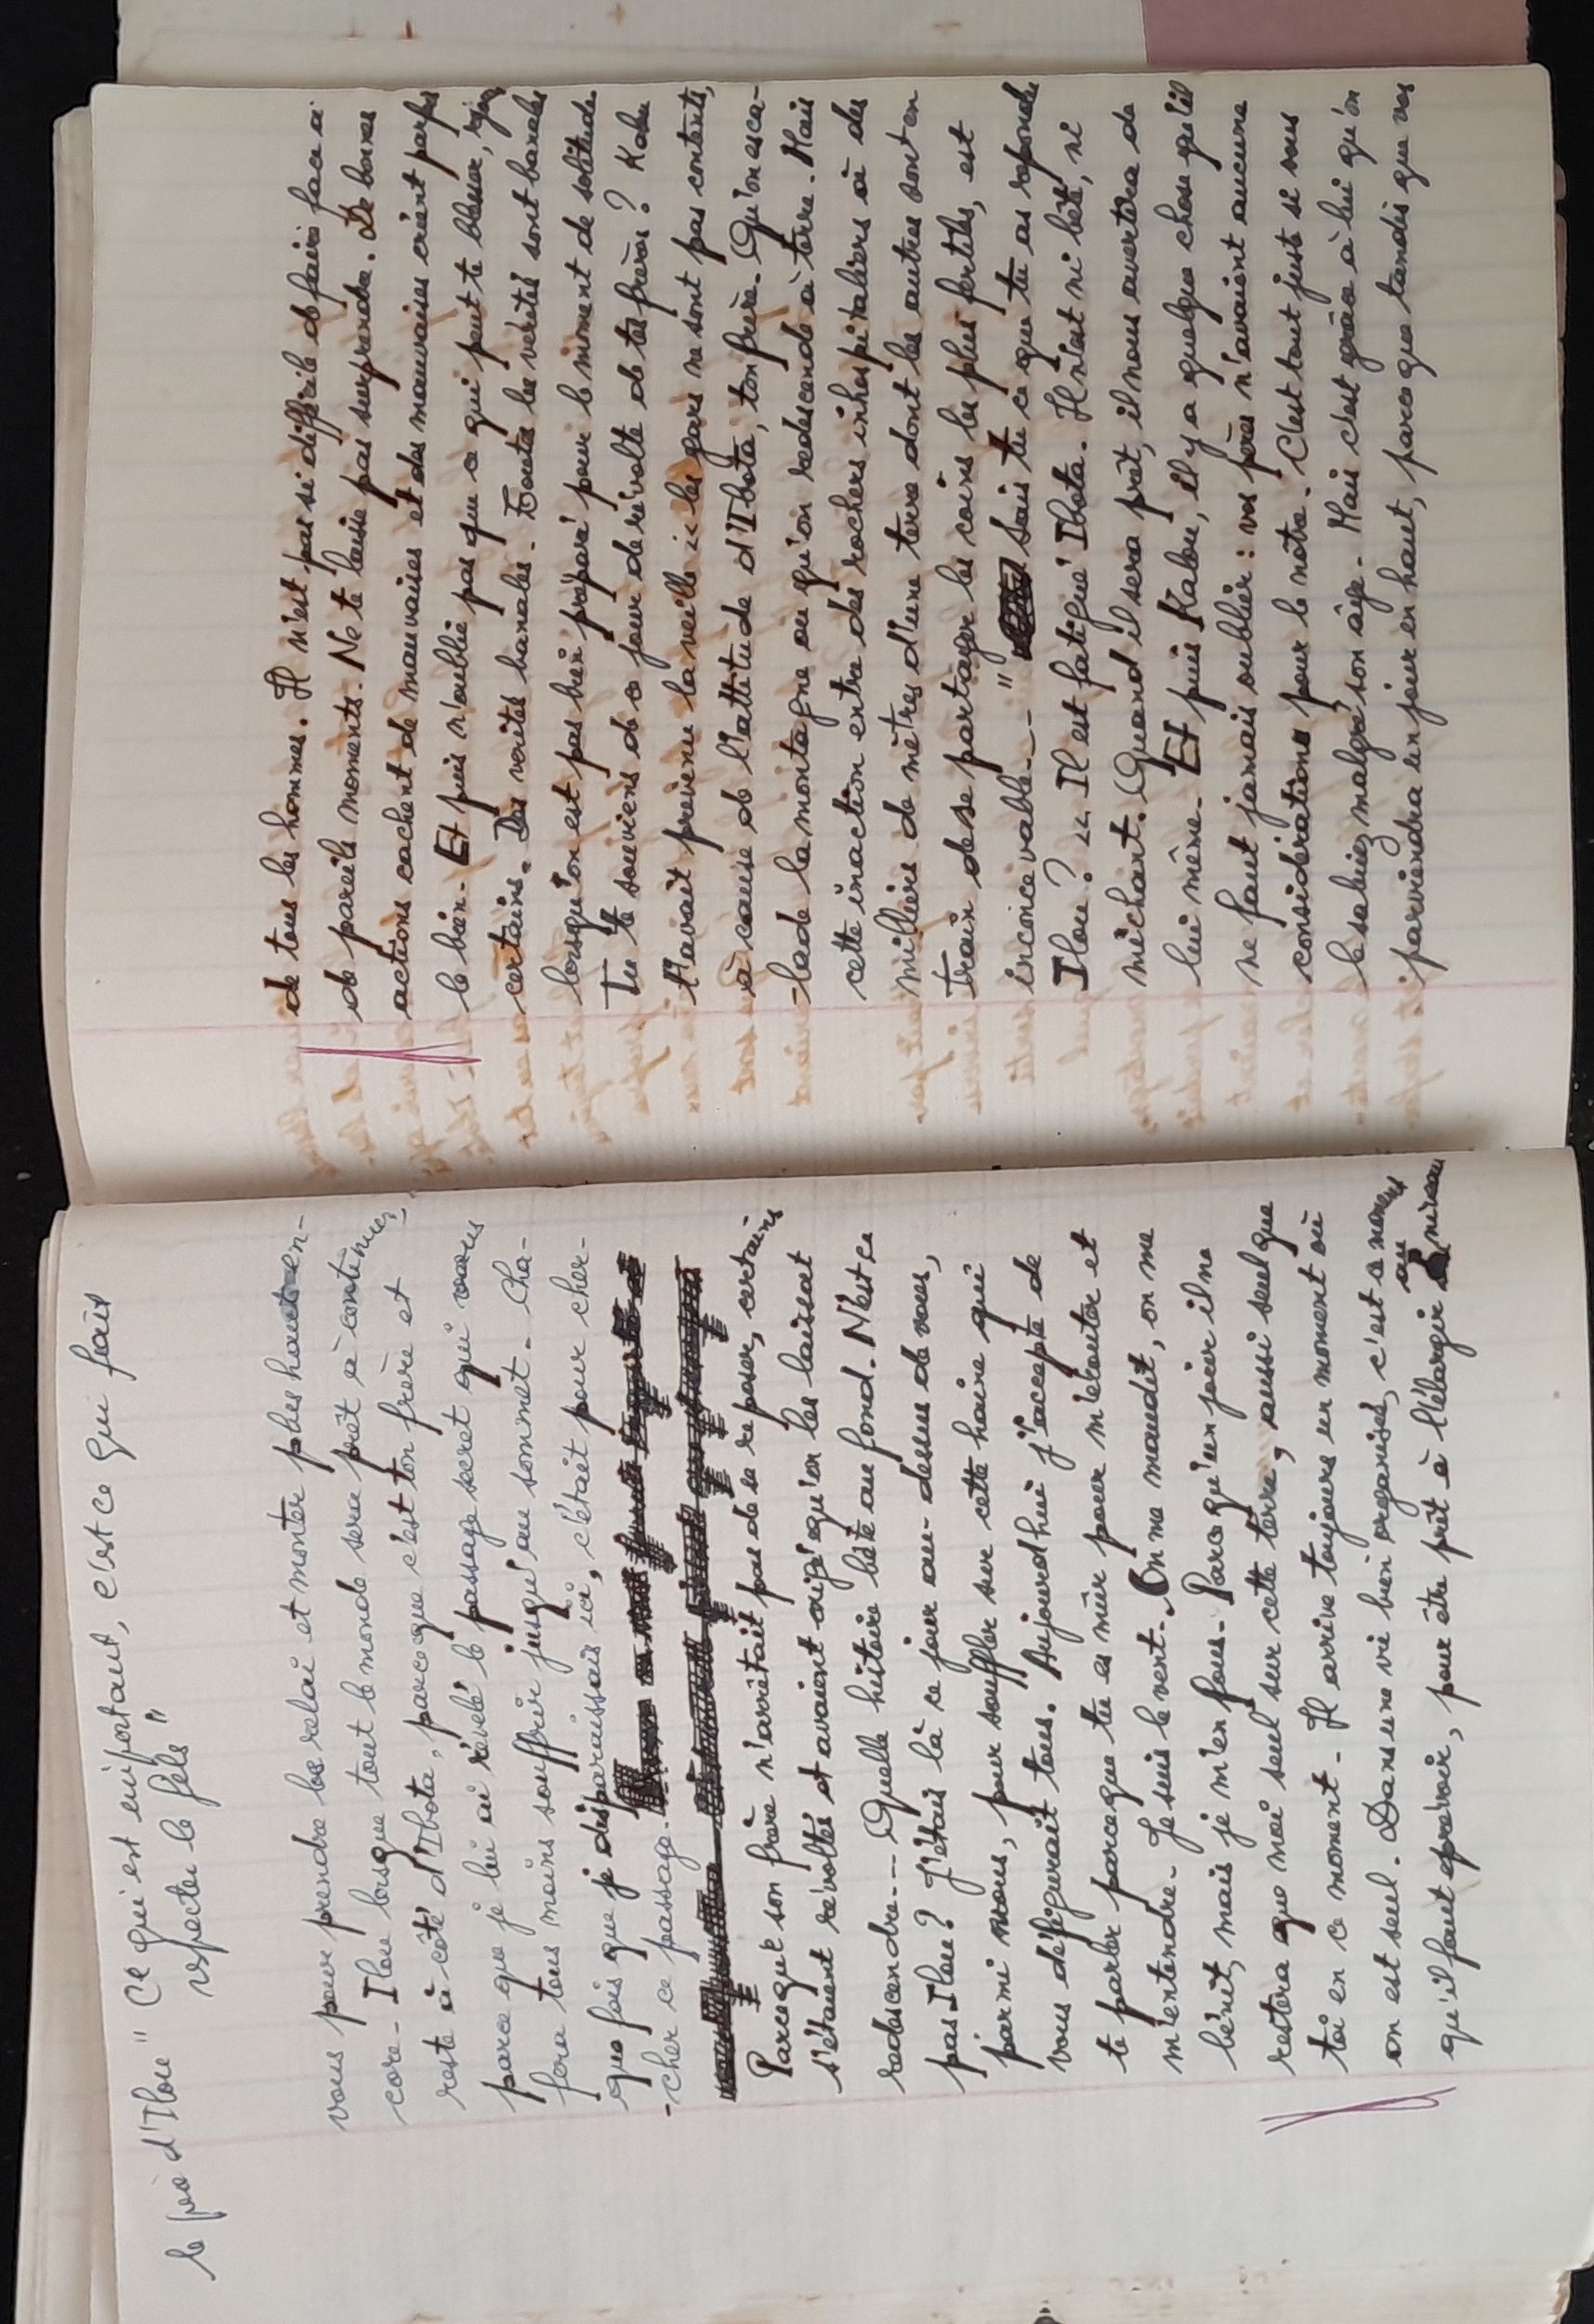 le père d'Ilou " Ce qui est important, c'est ce qui fait
respecter le fels "
vous pour prendre le relai et monter plus haut en-
core. Ilou lorsque tout le monde sera prêt à continuer,
reste à côté d'Ibota, parce que c'est ton frère et
parce que je lui ai révélé le passage secret qui vous
fera tous moins souffrir jusqu'au sommet. Cha-
que fois que je disparaissais ici, c'était pour cher-
-cher ce passage.
Parce que son frère n'arrêtait pas de se reposer, certains
s'étaient révoltés et avaient exigé qu'on les laissat
redescendre... Quelle histoire bête au fond. N'est ce
pas Ilou? J'étais là ce jour au-dessus de vous,
parmi vous, pour souffler sur cette haine qui
vous défigurait tous. Aujourd'hui j'accepte de
te parler parce que tu es mûr pour m'écouter et
m'entendre. Je suis le vent. On me maudit, on me
bénit, mais je m'en fous. Parce qu'un jour il ne
restera que moi seul sur cette terre, aussi seul que
toi en ce moment. Il arrive toujours un moment où
on est seul. Dans une vie bien organisée, c'est ce moment
qu'il faut prévoir, pour être prêt à l'élargir au niveau
de tous les hommes. Il n'est pas si difficile de faire face à
de pareils moments. Ne te laisse pas surprendre. De bonnes
actions cachent de mauvaises et des mauvaises créent parfois
le bien. Et puis n'oublie pas que ce qui peut te blesser,
certains. Des vérités banales. Toutes les vérités sont banales
lorsqu'on est pas bien préparé pour le moment de solitude.
Tu te souviens de ce jour de révolte de tes frères? Kabu
t'avait prévenu la veille « les gars ne sont pas contents,
à cause de l'attitude d'Ibota, ton frère. Qu'on esca-
-lade la montagne ou qu'on redescende à terre. Mais
cette inaction entre des rochers inhospitaliers à des
milliers de mètres d'une terre dont les autres sont en
train de se partager les coins les plus fertiles, est
inconcevable... " Sais tu ce que tu as répondu
Ilou? « Il est fatigué Ibota. Il n'est ni bête, ni
méchant. Quand il sera prêt, il nous avertira de
lui même. Et puis Kabu, il y a quelque chose qu'il
ne faut jamais oublier : vos pères n'avaient aucune
considération pour le nôtre. C'est tout juste si vous
le saluiez malgré son âge. Mais c'est grâce à lui qu'on
parviendra un jour en haut, parce que tandis que vos